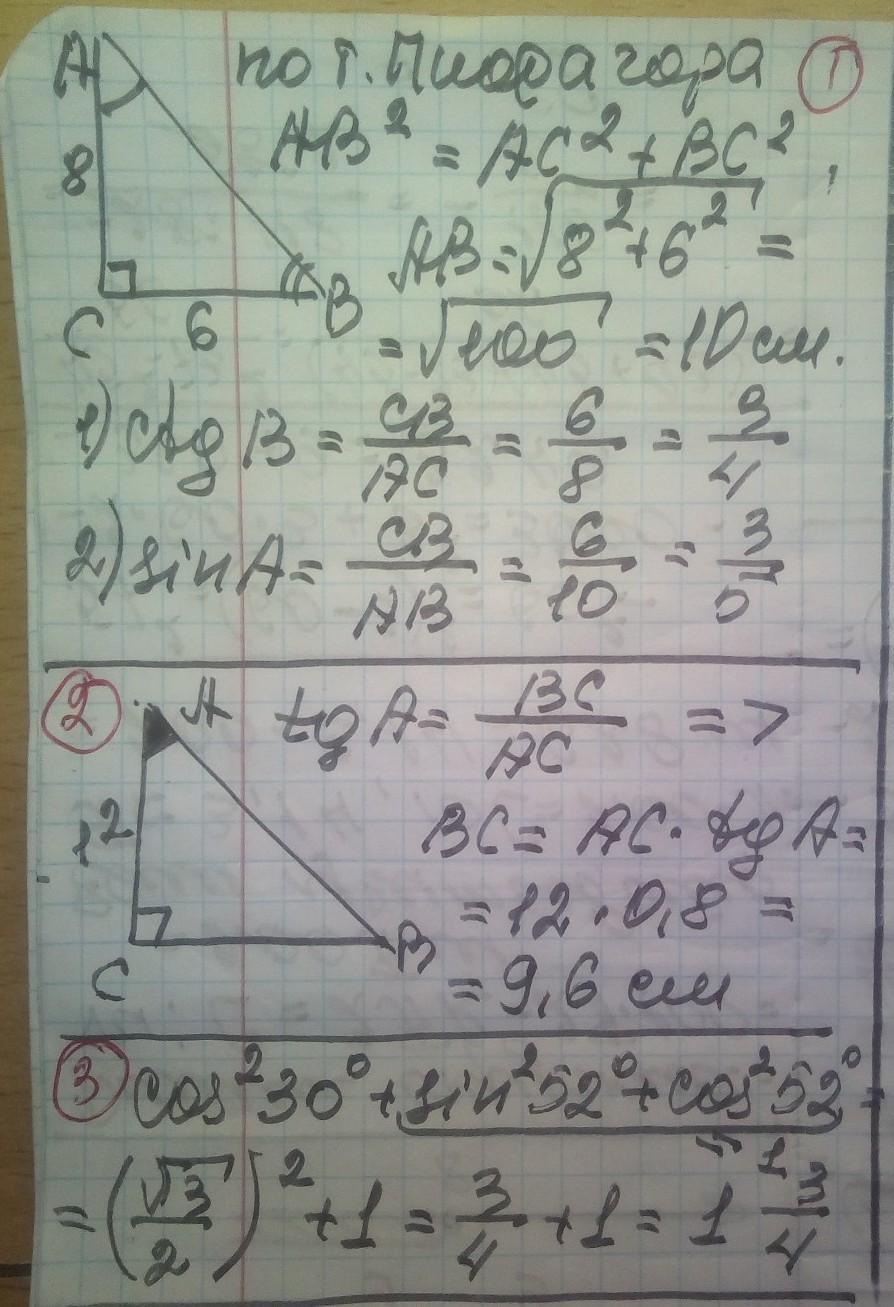 A по т. Пифагора ①
AB² = AC² + BC²,
8 AB = √(8² + 6²) =
C 6 B = √100 = 10 см.
1) ctg B = CB/AC = 6/8 = 3/4
2) sin A = CB/AB = 6/10 = 3/5
② A tg A = BC/AC =>
12 BC = AC · tg A =
= 12 · 0,8 =
C B = 9,6 см
③ cos²30° + sin²52° + cos²52° =
1
= (√3/2)² + 1 = 3/4 + 1 = 1 3/4